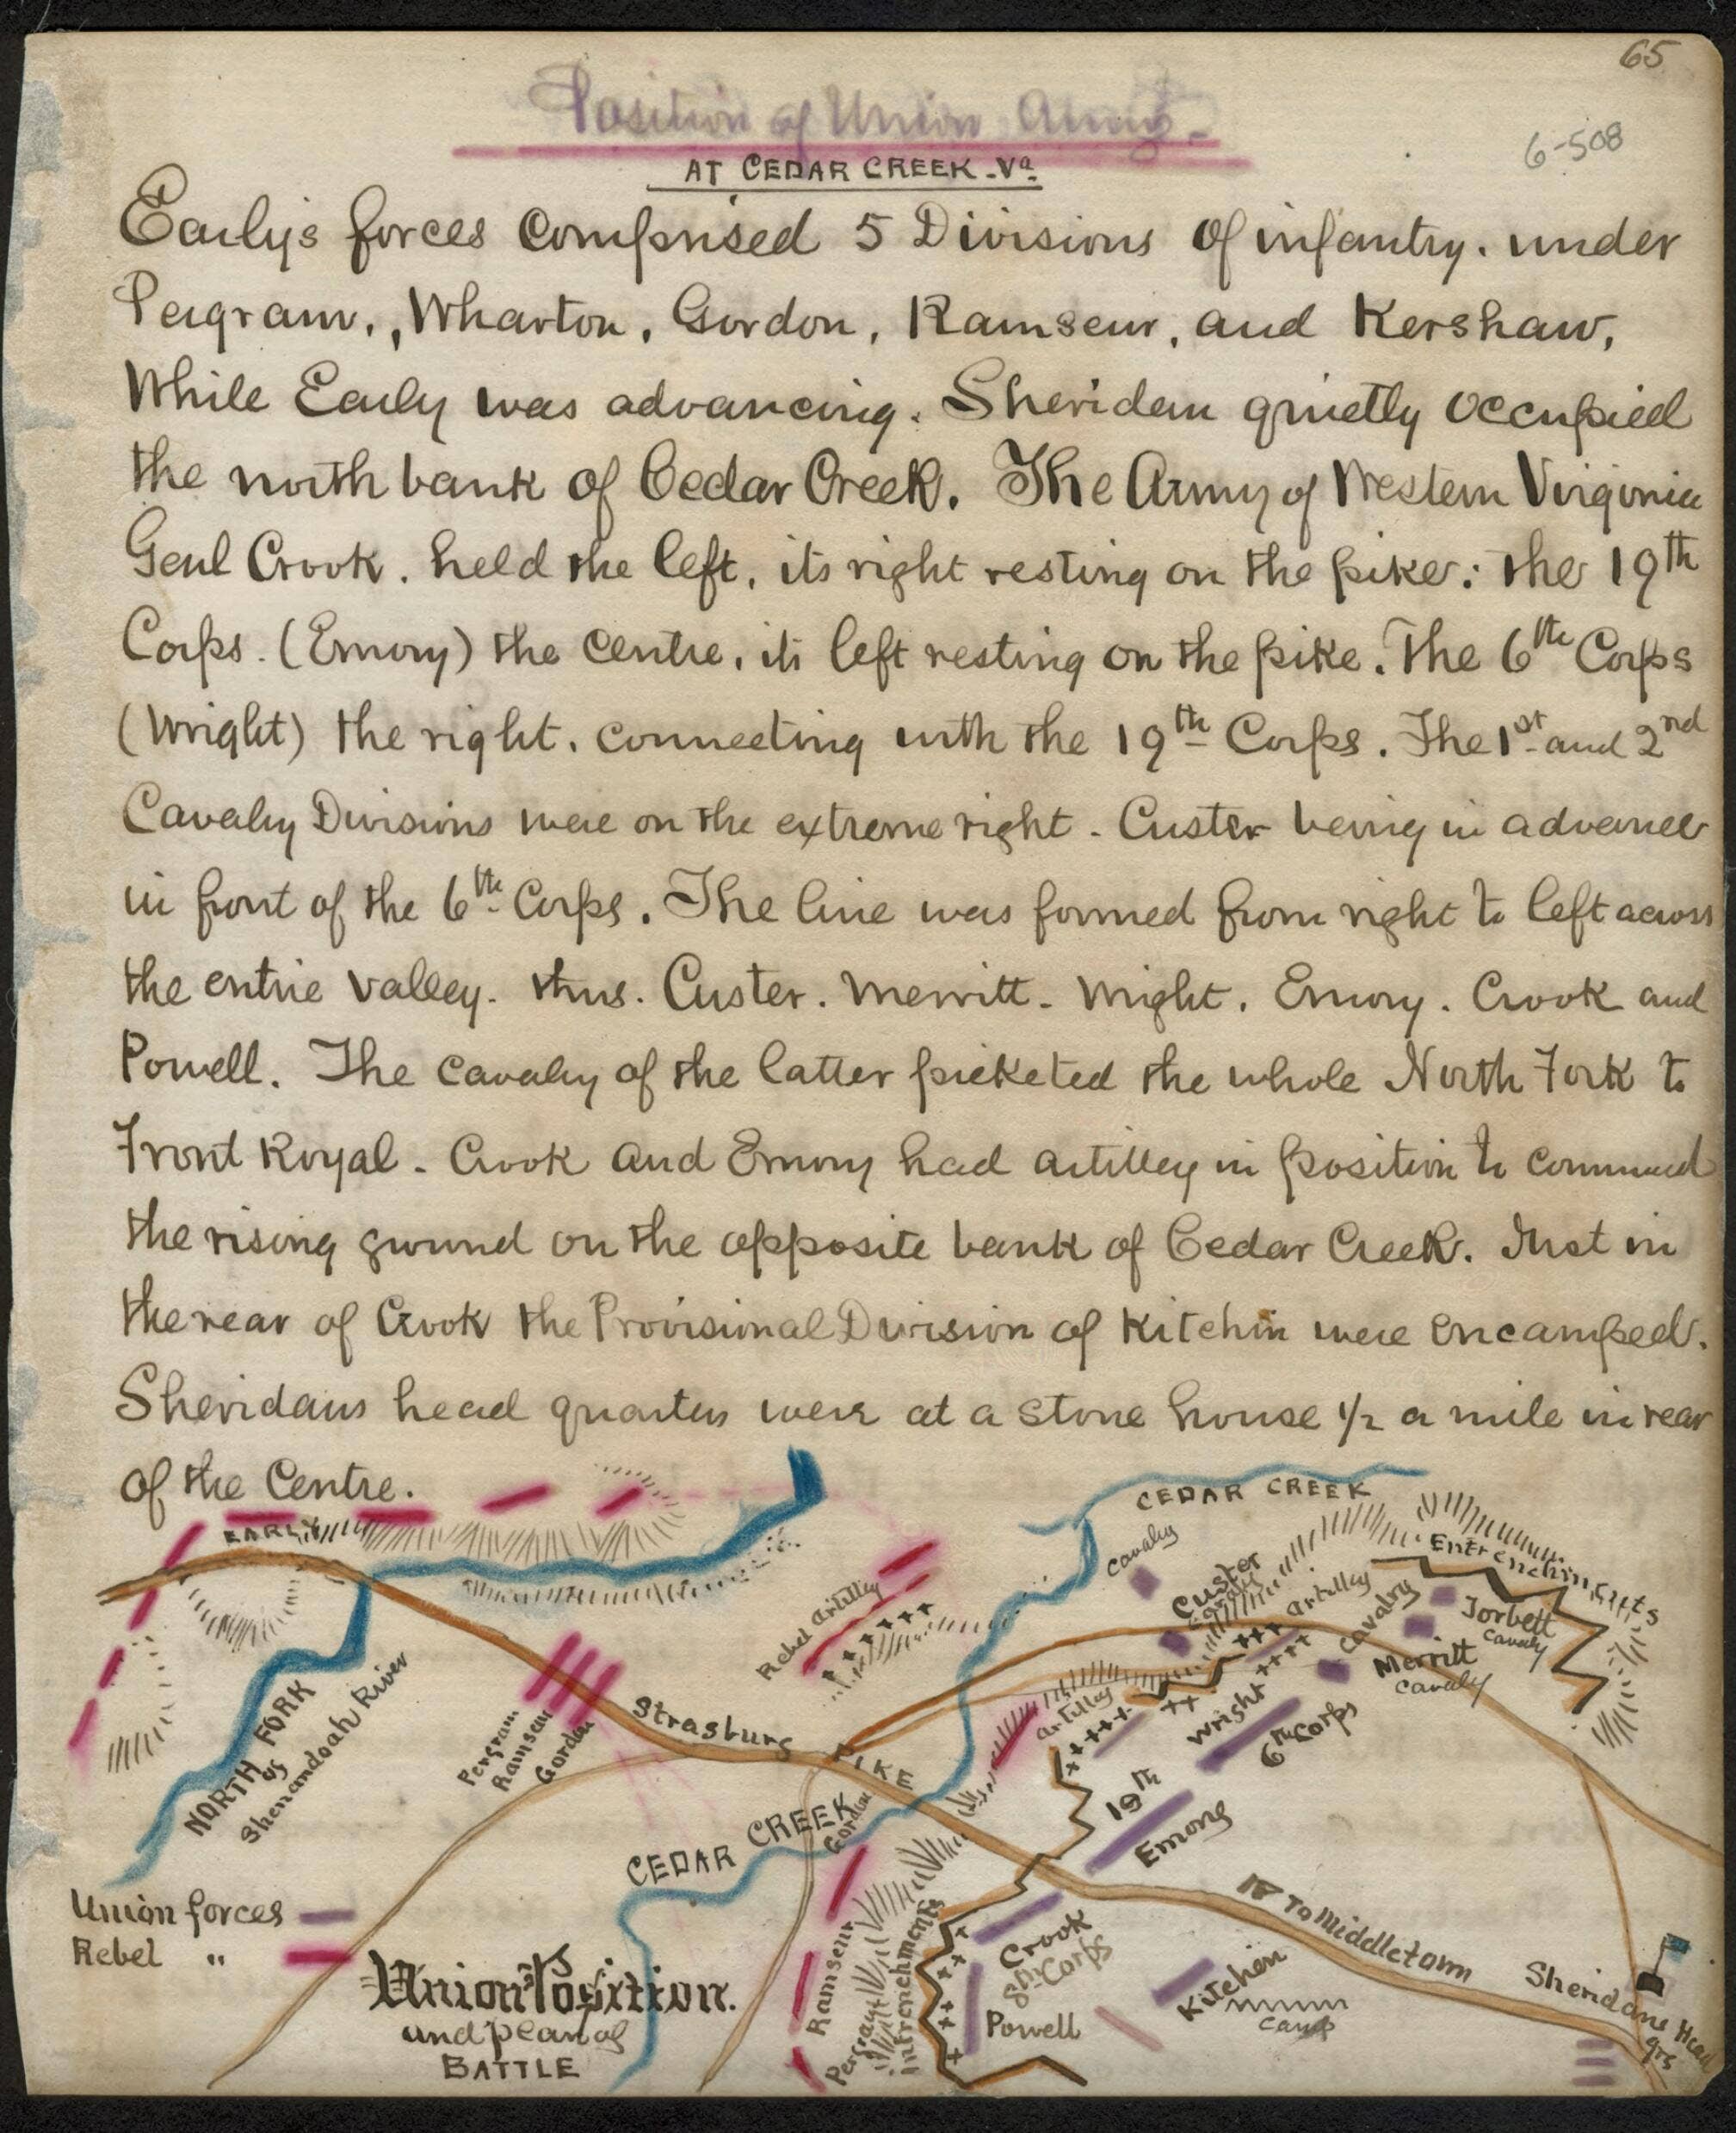 65
Position of Union Army.
6-508
AT CEDAR CREEK. Va.
Early's forces comprised 5 Divisions of infantry. under
Pergram., Wharton, Gordon, Ramseur, and Kershaw,
While Early was advancing. Sheridan quietly occupied
the north bank of Cedar Creek. The Army of Western Virginia
Genl Crook. held the left, its right resting on the pike: the 19th
Corps. (Emory) the centre, its left resting on the pike. The 6th Corps
(Wright) the right, connecting with the 19th Corps. The 1st and 2nd
Cavalry Divisions were on the extreme right - Custer being in advance
in front of the 6th Corps. The line was formed from right to left across
the entire valley. thus. Custer. Merritt. Wright. Emory. Crook and
Powell. The cavalry of the latter picketed the whole North Fork to
Front Royal. Crook and Emory had artillery in position to command
the rising ground on the opposite bank of Cedar Creek. Just in
the rear of Crook the Provisional Division of Kitchin were encamped.
Sheridans head quarters were at a stone house 1/2 a mile in rear
of the Centre.
EARLY
CEDAR CREEK
Cavalry
Custer
Cavalry
Artillery
Entrenchments
Cavalry
Torbett
Cavalry
Merritt
Cavalry
Rebel Artillery
NORTH FORK
of
Shenandoah River
Pergram
Ramseu
Gordon
Strasburg PIKE
Artillery
Wright
6th Corps
19th
Emory
CEDAR CREEK
Gordon
Union forces
Rebel "
Union Position.
and plan of
BATTLE
Ramseur
Pergram
Intrenchments
Crook
8th Corps
Powell
Kitchen
camp
To Middletown
Sheridans Head
qrs